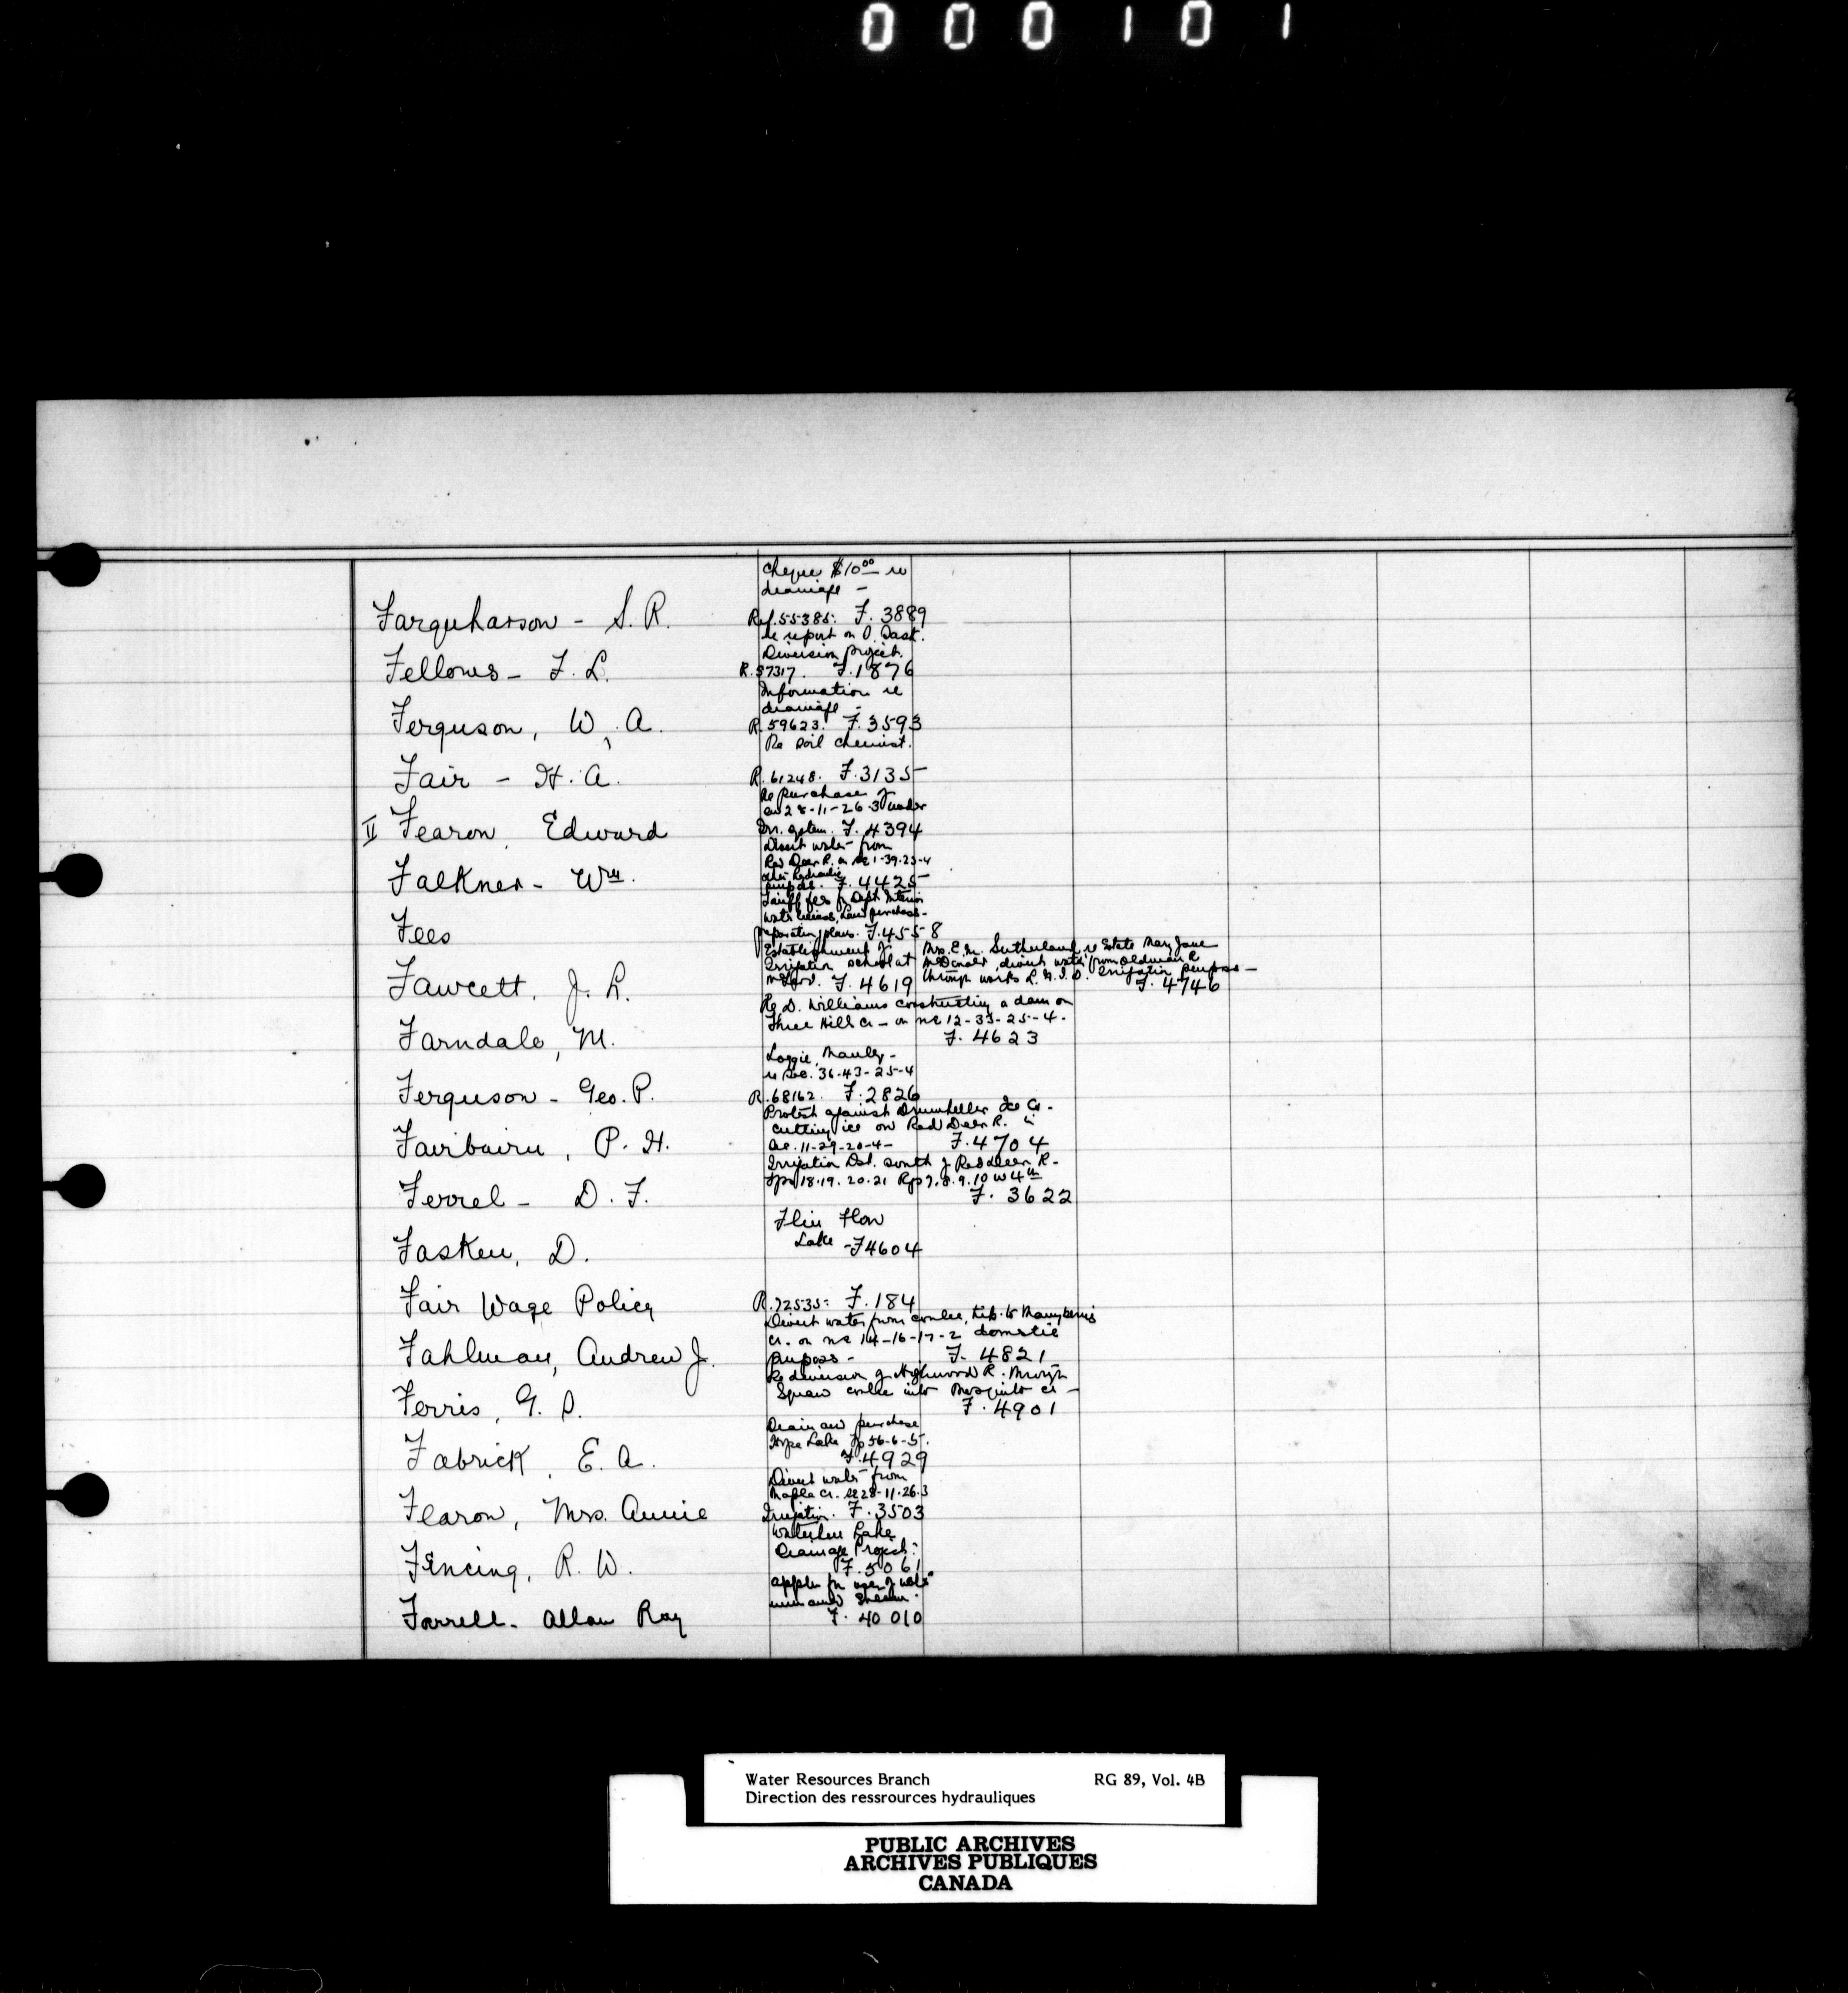 000101
Cheque $10⁰⁰ re
drainage -
Farquharson - S. R. Ref. 55385. F. 3889
Re report on O. Sask.
Diversion project.
Fellows - F. L. R. 57317. F. 1876
Information re
drainage -
Ferguson, W. A. R. 59623. F. 3593
Re soil chemist.
Fair - H. A. R. 61248. F. 3135
Re purchase of
sw 28-11-26-3 under
II Fearon, Edward Irr. system. F. 4394
Divert water from
Red Deer R. on ne 1-39-23-4
other hydraulic
Falkner - Wm. purpose. F. 4425
Tariff fees for Dept. Interior
water licenses, Land purchase -
Fees preparation plans. F. 4558
Establishment of Mrs. E. M. Sutherland, re Estate Mary Jane
Irrigation school at McDonald, divert water from Oldman R
Fawcett, J. L. F. 4619 through works L. N. I. D. Irrigation purposes - F. 4746
Re D. Williams constructing a dam on
Three Hills Cr - on ne 12-33-25-4 -
Farndale, M. F. 4623
Loggie, Manley -
re Sec. 36-43-25-4
Ferguson - Geo. P. R. 68162. F. 2826
Protest against Drumheller Ice Co -
cutting ice on Red Deer R. in
Fairbairn, P. H. Sec. 11-29-20-4 - F. 4704
Irrigation Dst. south of Red Deer R -
Tps 18.19.20.21 Rgs 7.8.9.10 W 4th
Ferrel - D. F. F. 3622
Flin Flon
Fasken, D. Lake - F 4604
Fair Wage Policy R. 72535: F. 184
Divert water from coulee, trib. to Manyberries
Cr. on ne 14-16-17-2 domestic
Fahlman, Andrew J. purposes - F. 4821
Re diversion of Highwood R. through
Squaw coulee into Mosquito Cr -
Ferris, G. S. F. 4901
Drain and purchase
Hope Lake Tp 56-6-5.
Fabrick, E. A. F. 4929
Divert water from
Maple Cr. se 28-11-26-3
Fearon, Mrs. Annie Irrigation. F. 3503
Lake
Drainage Project:
Fencing, R. W. F. 5061
appln for use of water
Stream -
Farrell - Allan Ray F. 40010
Water Resources Branch RG 89, Vol. 4B
Direction des ressrources hydrauliques
PUBLIC ARCHIVES
ARCHIVES PUBLIQUES
CANADA